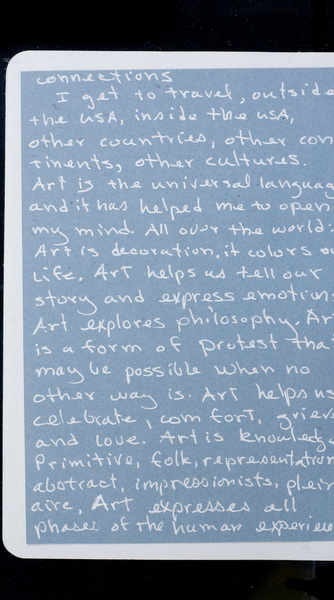 connections
I get to travel, outside
the USA, inside the USA,
other countries, other con
tinents, other cultures.
Art is the universal languag
and it has helped me to open
my mind. All over the world:
Art is decoration, it colors ou
life. Art helps us tell our
story and express emotion
Art explores philosophy. Ar
is a form of protest tha
may be possible when no
other way is. Art helps us
celebrate, comfort, griev
and love. Art is knowledge
Primitive, folk, representation
abstract, impressionists, plein
aire, Art expresses all
phases of the human experien